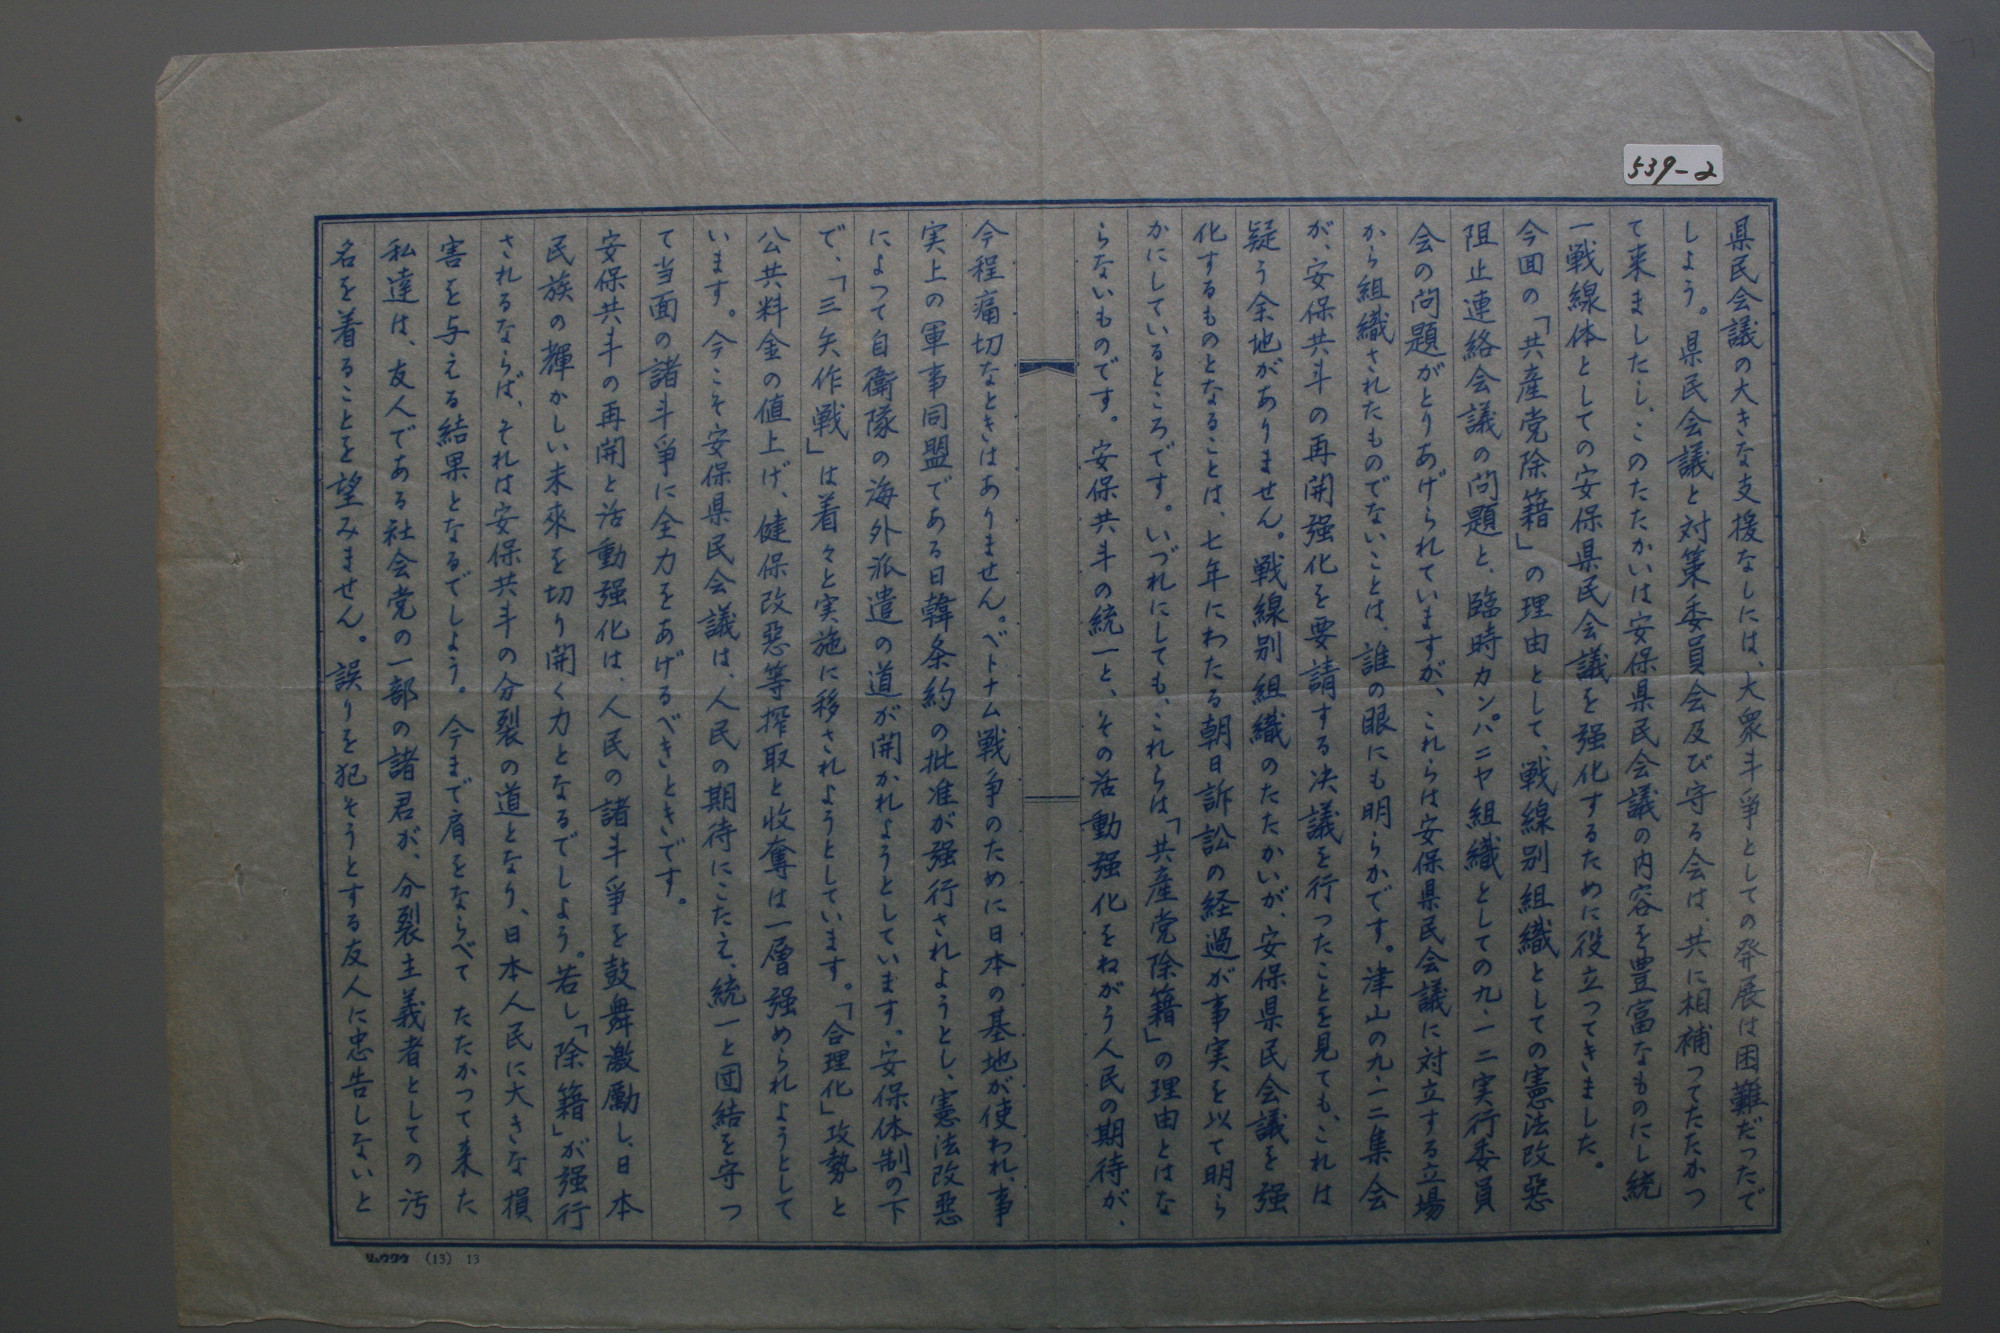 539-2
県民会議の大きな支援なしには、大衆斗爭としての発展は困難だったで
しよう。県民会議と対策委員会及び守る会は、共に相補つてたたかつ
て来ましたし、このたたかいは安保県民会議の内容を豊富なものにし統
一戦線体としての安保県民会議を强化するために役立つてきました。
今回の「共産党除籍」の理由として、戦線別組織としての憲法改惡
阻止連絡会議の問題と、臨時カンパニヤ組織としての九、一二実行委員
会の問題がとりあげられていますが、これらは安保県民会議に対立する立場
から組織されたものでないことは、誰の眼にも明らかです。津山の九、一二集会
が、安保共斗の再開强化を要請する決議を行つたことを見ても、これは
疑う余地がありません。戦線別組織のたたかいが、安保県民会議を强
化するものとなることは、七年にわたる朝日訴訟の経過が事実を以て明ら
かにしているところです。いづれにしても、これらは「共産党除籍」の理由とはな
らないものです。安保共斗の統一と、その活動强化をねがう人民の期待が、
今程痛切なときはありません。ベトナム戦争のために日本の基地が使われ、事
実上の軍事同盟である日韓条約の批准が强行されようとし、憲法改惡
によつて自衛隊の海外派遣の道が開かれようとしています。安保体制の下
で、「三矢作戦」は着々と実施に移されようとしています。「合理化」攻勢と
公共料金の値上げ、健保改惡等搾取と收奪は一層强められようとして
います。今こそ安保県民会議は、人民の期待にこたえ、統一と団結を守つ
て当面の諸斗爭に全力をあげるべきときです。
安保共斗の再開と活動强化は、人民の諸斗爭を鼓舞激励し、日本
民族の輝かしい未來を切り開く力となるでしよう。若し「除籍」が强行
されるならば、それは安保共斗の分裂の道となり、日本人民に大きな損
害を与える結果となるでしよう。今まで肩をならべて たたかつて来た
私達は、友人である社会党の一部の諸君が、分裂主義者としての汚
名を着ることを望みません。誤りを犯そうとする友人に忠告しないと
リュウタウ (13) 13